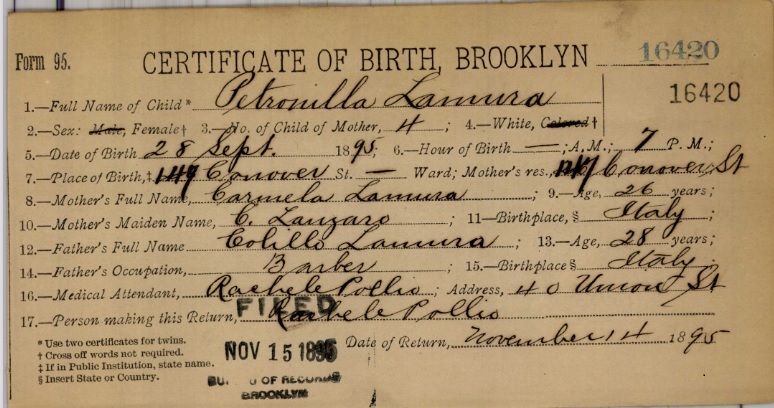 Form 95. CERTIFICATE OF BIRTH, BROOKLYN 16420
16420
1.—Full Name of Child* Petronilla Lamura
2.—Sex: Male, Female† 3.—No. of Child of Mother, 4 ; 4.—White, Colored †
5.—Date of Birth 28 Sept. 1895; 6.—Hour of Birth — ; A.M.; 7 P.M.;
7.—Place of Birth,‡ 149 Conover St. — Ward; Mother's res. Conover St
8.—Mother's Full Name, Carmela Lamura ; 9.—Age, 26 years;
10.—Mother's Maiden Name, C. Lanzaro ; 11—Birthplace, § Italy ;
12.—Father's Full Name Lamura ; 13.—Age, 28 years;
14.—Father's Occupation, Barber ; 15.—Birthplace § Italy ;
16.—Medical Attendant, Rachele Pollio ; Address, 40 Union St
17.—Person making this Return, Rachele Pollio
FILED
* Use two certificates for twins.
† Cross off words not required.
‡ If in Public Institution, state name.
§ Insert State or Country.
Date of Return, November 14 1895
NOV 15 1895
BUREAU OF RECORDS
BROOKLYN